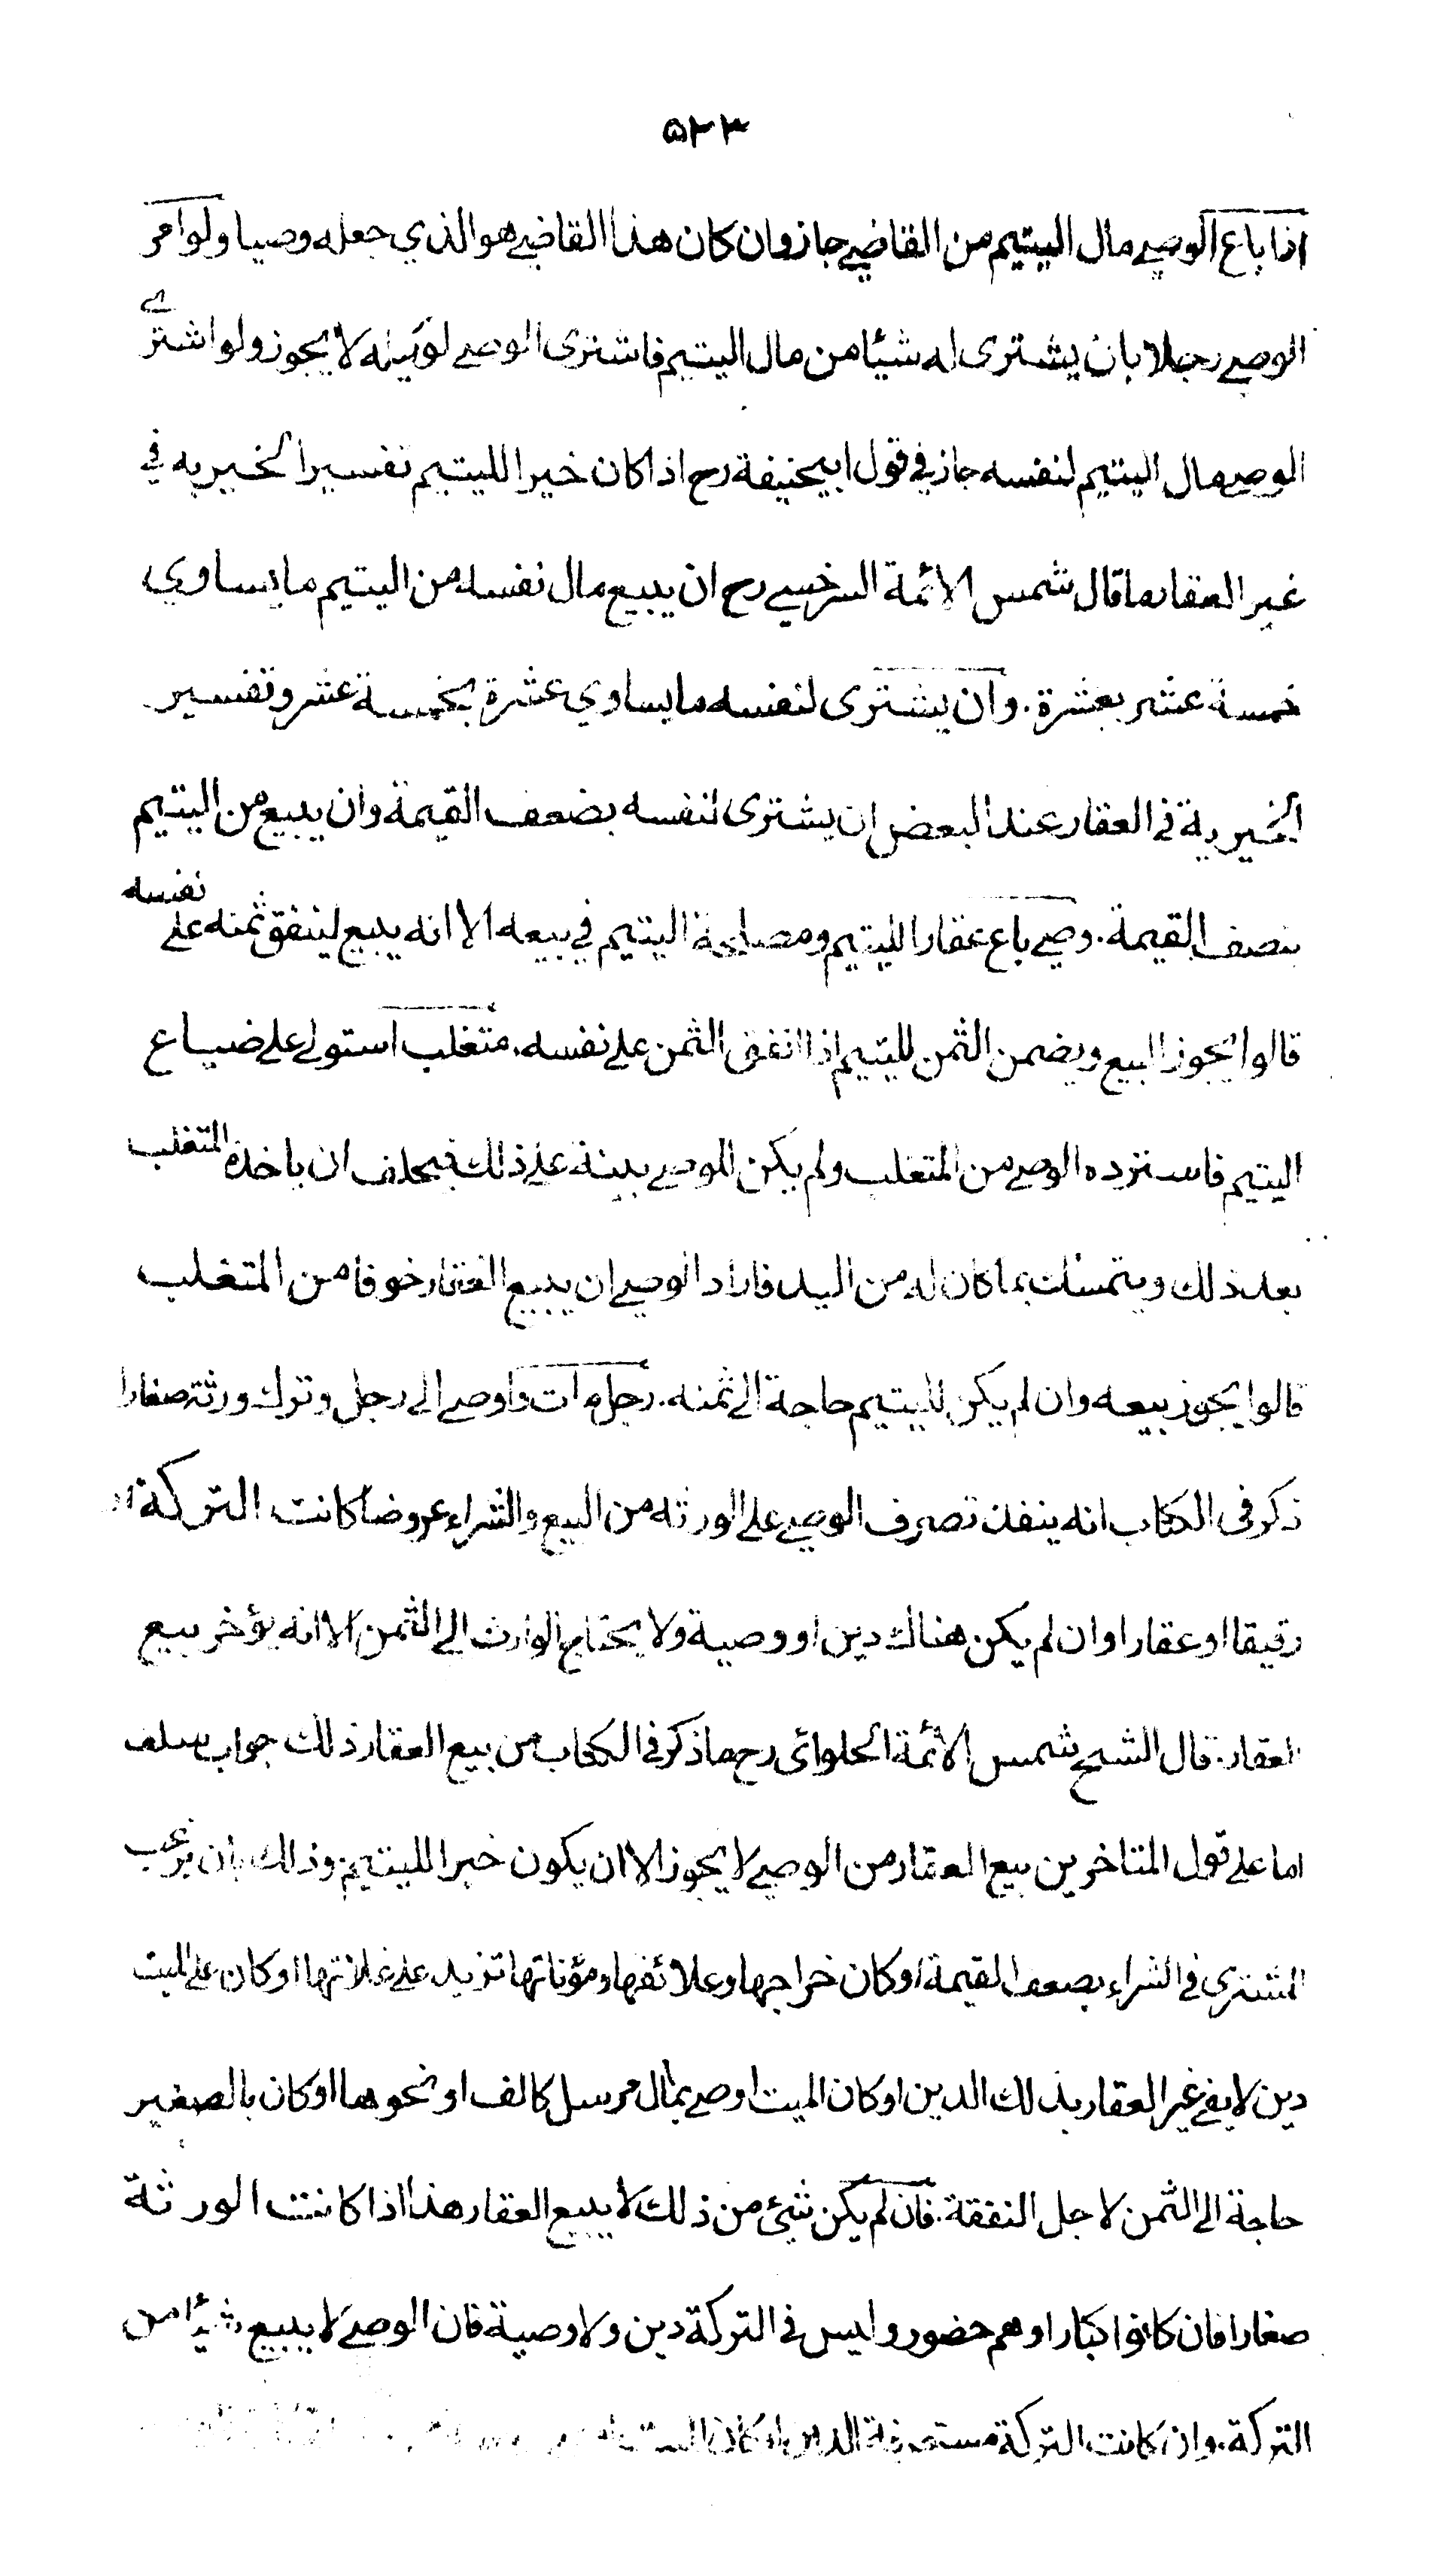 ۵۲۳
اذا باع الوصي مال اليتيم من القاضي جاز وان كان هذا القاضي هو الذي جعله وصيا ولو امر
الوصي رجلا بان يشترى له شيئا من مال اليتيم فاشترى الوصي لوكيله لا يجوز ولو اشترى
الوصي مال اليتيم لنفسه جاز في قول ابيحنيفة رح اذا كان خيرا لليتيم تفسير الخيرية في
غير العقار ما قال شمس الائمة السرخسي رح ان يبيع مال نفسه من اليتيم ما يساوي
خمسة عشر بعشرة. وان يشترى لنفسه ما يساوي عشرة بخمسة عشر وتفسير
الخيرية في العقار عند البعض ان يشترى لنفسه بضعف القيمة وان يبيع من اليتيم
بنصف القيمة. وصي باع عقارا لليتيم ومصلحة اليتيم في بيعه الا انه يبيع لينفق ثمنه على نفسه
قالوا يجوز البيع ويضمن الثمن لليتيم اذا انفق الثمن على نفسه. متغلب استولى على ضياع
اليتيم فاسترده الوصي من المتغلب ولم يكن للوصي بينة على ذلك فيخاف ان ياخذه المتغلب
بعد ذلك ويتمسك بما كان له من اليد فاراد الوصي ان يبيع العقار خوفا من المتغلب
قالوا يجوز بيعه وان لم يكن لليتيم حاجة الى ثمنه. رجل مات واوصى الى رجل وترك ورثة صغارا
ذكر فى الكتاب انه ينفذ تصرف الوصي على الورثة من البيع والشراء عروضا كانت التركة او
رقيقا او عقارا وان لم يكن هناك دين او وصية ولا يحتاج الوارث الى الثمن الا انه يؤخر بيع
العقار. قال الشيخ شمس الائمة الحلوائى رح ما ذكر في الكتاب من بيع العقار ذلك جواب سلف
اما على قول المتاخرين بيع العقار من الوصي لا يجوز الا ان يكون خيرا لليتيم وذلك بان يرغب
المشترى في الشراء بضعف القيمة او كان خراجها وعلائفها ومؤناتها تزيد على غلاتها او كان على الميت
دين لا يفي غير العقار بذلك الدين او كان الميت اوصى بمال مرسل كالف او نحوها او كان بالصغير
حاجة الى الثمن لاجل النفقة. فان لم يكن شئ من ذلك لا يبيع العقار هذا اذا كانت الورثة
صغارا فان كانوا كبارا وهم حضور وليس في التركة دين ولا وصية فان الوصي لا يبيع شيئا من
التركة. وان كانت التركة مستغرقة الدين او كان الميت